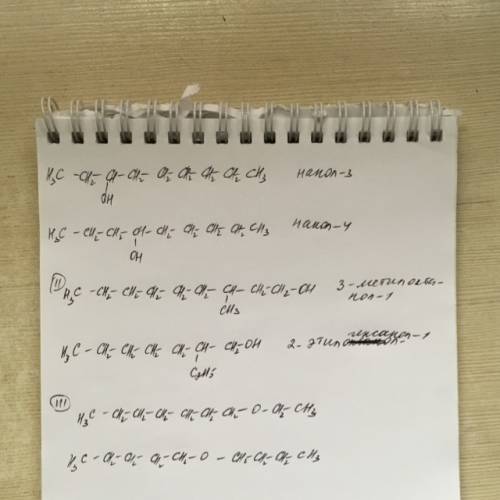 H₃C - CH₂ - CH - CH₂ - CH₂ - CH₂ - CH₂ - CH₂ - CH₃ нанол-3
OH
H₃C - CH₂ - CH₂ - CH - CH₂ - CH₂ - CH₂ - CH₂ - CH₃ нанол-4
OH
II H₃C - CH₂ - CH₂ - CH₂ - CH₂ - CH₂ - CH - CH₂ - CH₂ - OH 3-метилокта-
CH₃ нол-1
H₃C - CH₂ - CH₂ - CH₂ - CH₂ - CH - CH₂OH 2-этил гексанол-1
C₂H₅
III H₃C - CH₂ - CH₂ - CH₂ - CH₂ - CH₂ - CH₂ - O - CH₂ - CH₃
H₃C - CH₂ - CH₂ - CH₂ - CH₂ - O - CH₂ - CH₂ - CH₂ - CH₃